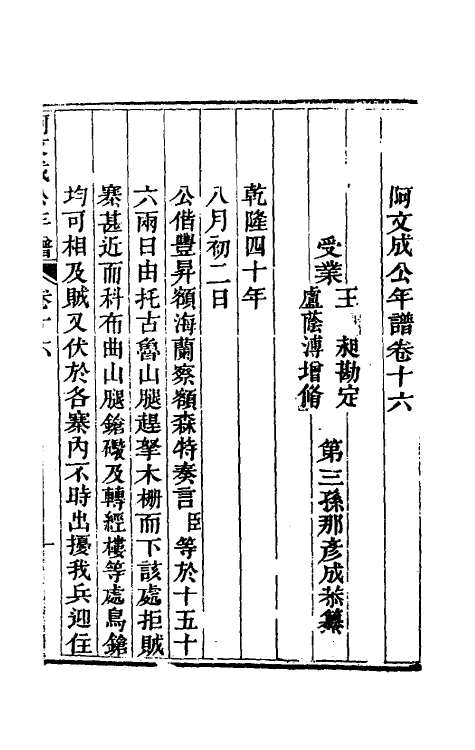 阿文成公年譜卷十六
第三孫那彥成恭纂
受業王昶勘定
盧蔭溥增脩
乾隆四十年
八月初二日
公偕豐昇額海蘭察額森特奏言臣等於十五十
六兩日由托古魯山腿趕拏木柵而下該處拒賊
寨甚近而科布曲山腿鎗礮及轉經樓等處鳥鎗
均可相及賊又伏於各寨內不時出擾我兵迎住
阿文成公年譜 卷十六 一